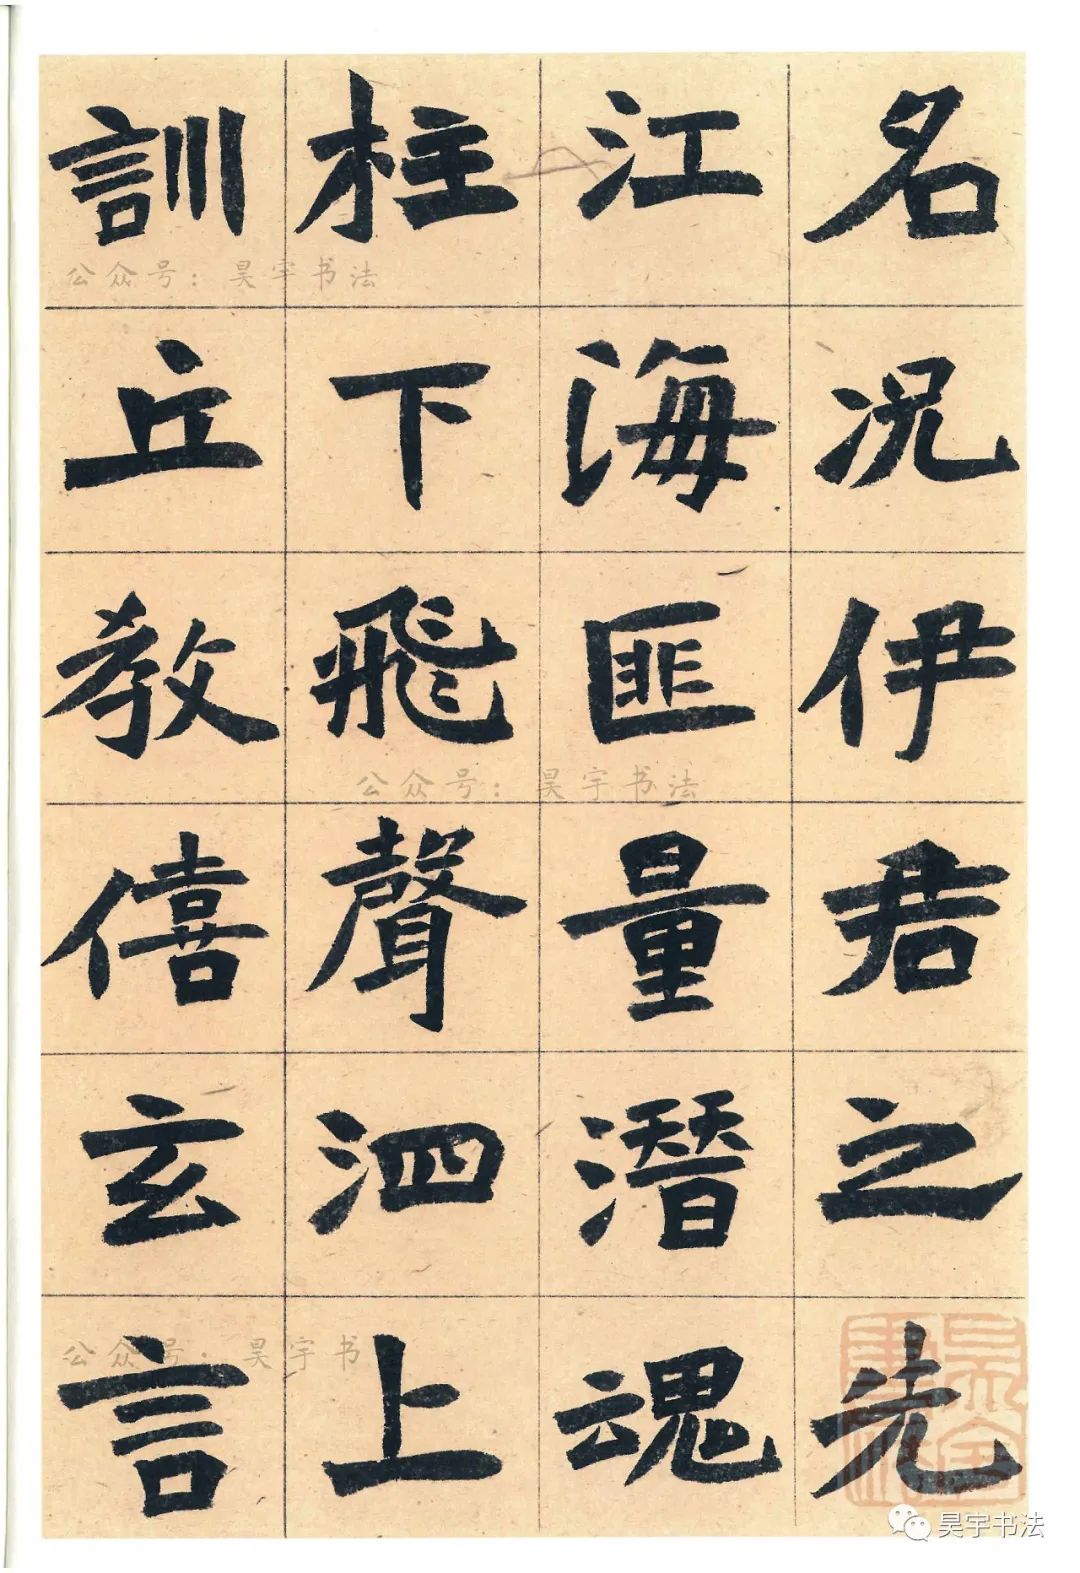 名况伊君之先
江海匪量潛魂
柱下飛聲泗上
訓丘教僖玄言
公众号：昊宇书法
公众号：昊宇书法
公众号：昊宇书
昊宇书法